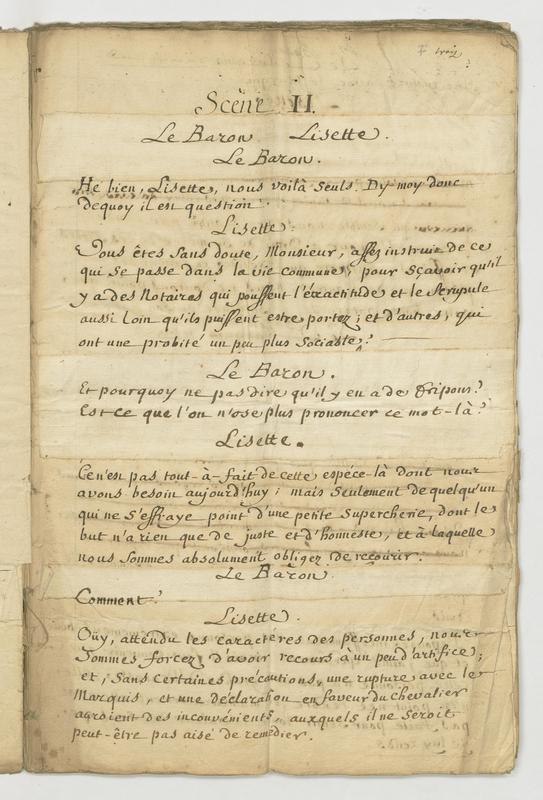 trois
Scène II.
Le Baron Lisette.
Le Baron.
Hé bien, Lisette, nous voilà seuls. Dy moy donc
dequoy il est question.
Lisette.
Vous êtes sans doute, Monsieur, assez instruit de ce
qui se passe dans la vie commune, pour sçavoir qu'il
y a des Notaires qui poussent l'éxactitude et le scrupule
aussi loin qu'ils puissent estre portez; et d'autres, qui
ont une probité un peu plus sociable?
Le Baron.
Et pourquoy ne pas dire qu'il y en a de fripons?
Est-ce que l'on n'ose plus prononcer ce mot-là?
Lisette.
Ce n'est pas tout-à-fait de cette espéce-là dont nous
avons besoin aujourd'huy; mais seulement de quelqu'un
qui ne s'effraye point d'une petite supercherie, dont le
but n'a rien que de juste et d'honneste, et à laquelle
nous sommes absolument obligez de recourir.
Le Baron.
Comment?
Lisette.
Oüy, attendu les caractères des personnes, nous
sommes forcez d'avoir recours à un peu d'artifice;
et, sans certaines précautions, une rupture avec le
Marquis, et une déclaration en faveur du chevalier
auroient des inconvénients, auxquels il ne seroit
peut-être pas aisé de remedier.